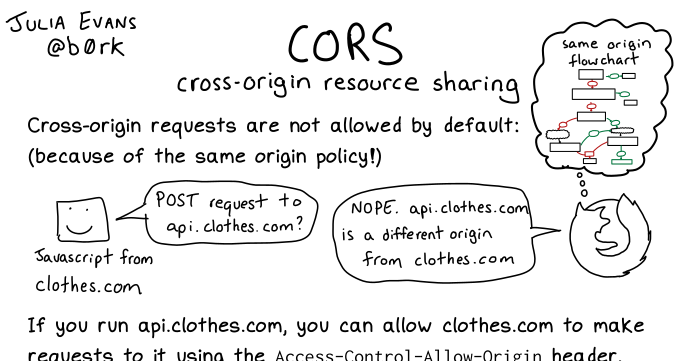 JULIA EVANS
@b0rk
CORS
cross-origin resource sharing
same origin
flowchart
Cross-origin requests are not allowed by default:
(because of the same origin policy!)
POST request to
api.clothes.com?
NOPE. api.clothes.com
is a different origin
from clothes.com
Javascript from
clothes.com
If you run api.clothes.com, you can allow clothes.com to make
requests to it using the Access-Control-Allow-Origin header.